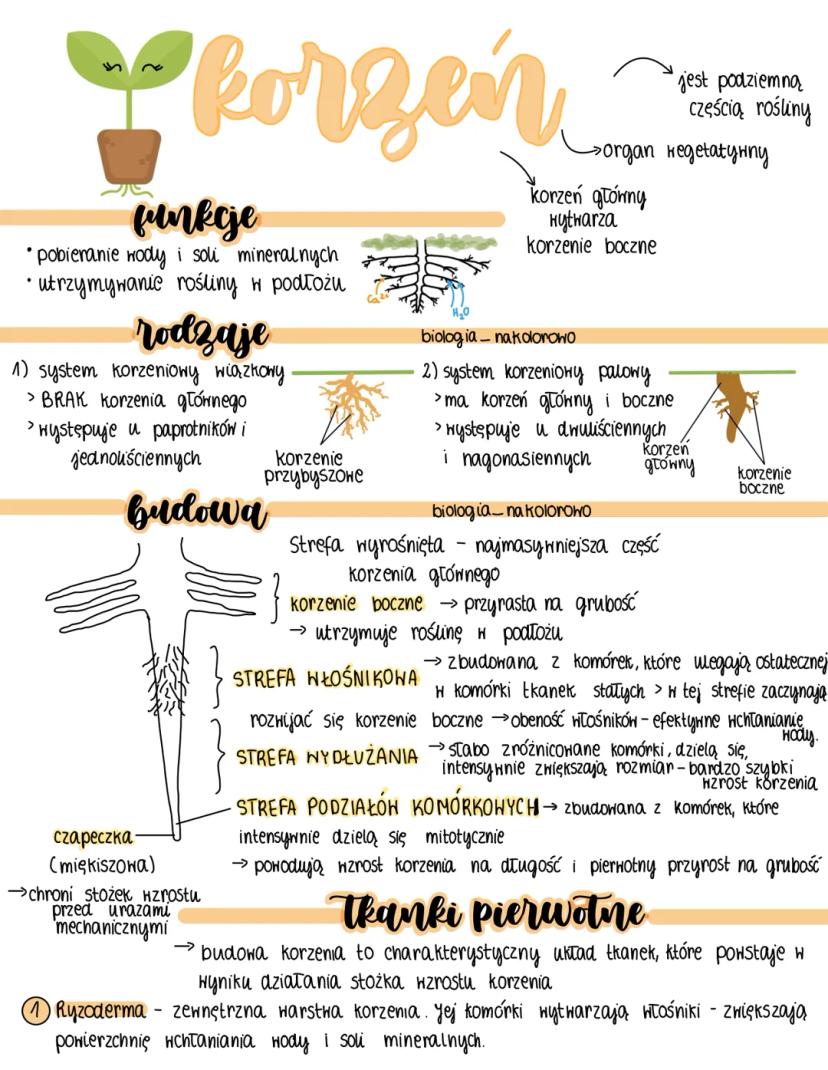 korzeń
jest podziemną
częścią rośliny
organ wegetatywny
korzeń główny
wytwarza
korzenie boczne
funkcje
• pobieranie wody i soli mineralnych
• utrzymywanie rośliny w podłożu
Ca²⁺
H₂O
rodzaje
biologia_nakolorowo
1) system korzeniowy wiązkowy
> BRAK korzenia głównego
> występuje u paprotników i
jednoliściennych
korzenie
przybyszowe
2) system korzeniowy palowy
> ma korzeń główny i boczne
> występuje u dwuliściennych
i nagonasiennych
korzeń
główny
korzenie
boczne
budowa
biologia_nakolorowo
Strefa wyrośnięta - najmasywniejsza część
korzenia głównego
korzenie boczne → przyrasta na grubość
→ utrzymuje roślinę w podłożu
STREFA WŁOŚNIKOWA → zbudowana z komórek, które ulegają ostatecznej
w komórki tkanek stałych > w tej strefie zaczynają
rozwijać się korzenie boczne → obeność włośników - efektywne wchłanianie
wody.
STREFA WYDŁUŻANIA → słabo zróżnicowane komórki, dzielą się,
intensywnie zwiększają rozmiar - bardzo szybki
wzrost korzenia
STREFA PODZIAŁÓW KOMÓRKOWYCH → zbudowana z komórek, które
intensywnie dzielą się mitotycznie
→ powodują wzrost korzenia na długość i pierwotny przyrost na grubość
czapeczka
(miękiszowa)
→ chroni stożek wzrostu
przed urazami
mechanicznymi
tkanki pierwotne
→ budowa korzenia to charakterystyczny układ tkanek, które powstaje w
wyniku działania stożka wzrostu korzenia
1 Ryzoderma - zewnętrzna warstwa korzenia. Jej komórki wytwarzają włośniki - zwiększają
powierzchnię wchłaniania wody i soli mineralnych.